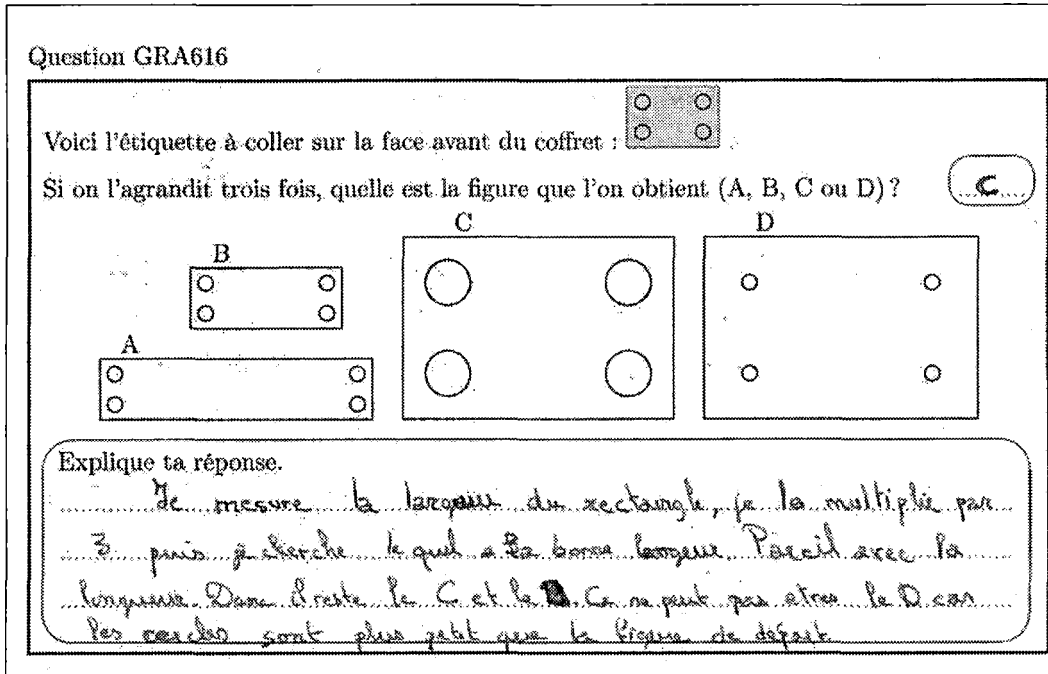 Question GRA616
Voici l'étiquette à coller sur la face avant du coffret :
Si on l'agrandit trois fois, quelle est la figure que l'on obtient (A, B, C ou D) ?
C
C
D
B
A
Explique ta réponse.
Je mesure la largeur du rectangle, je la multiplie par
3 puis je cherche le quel a la bonne largeur. Pareil avec la
longueur. Donc il reste le C et le D. Ce ne peut pas etres le D car
les cercles sont plus petit que la figure de départ